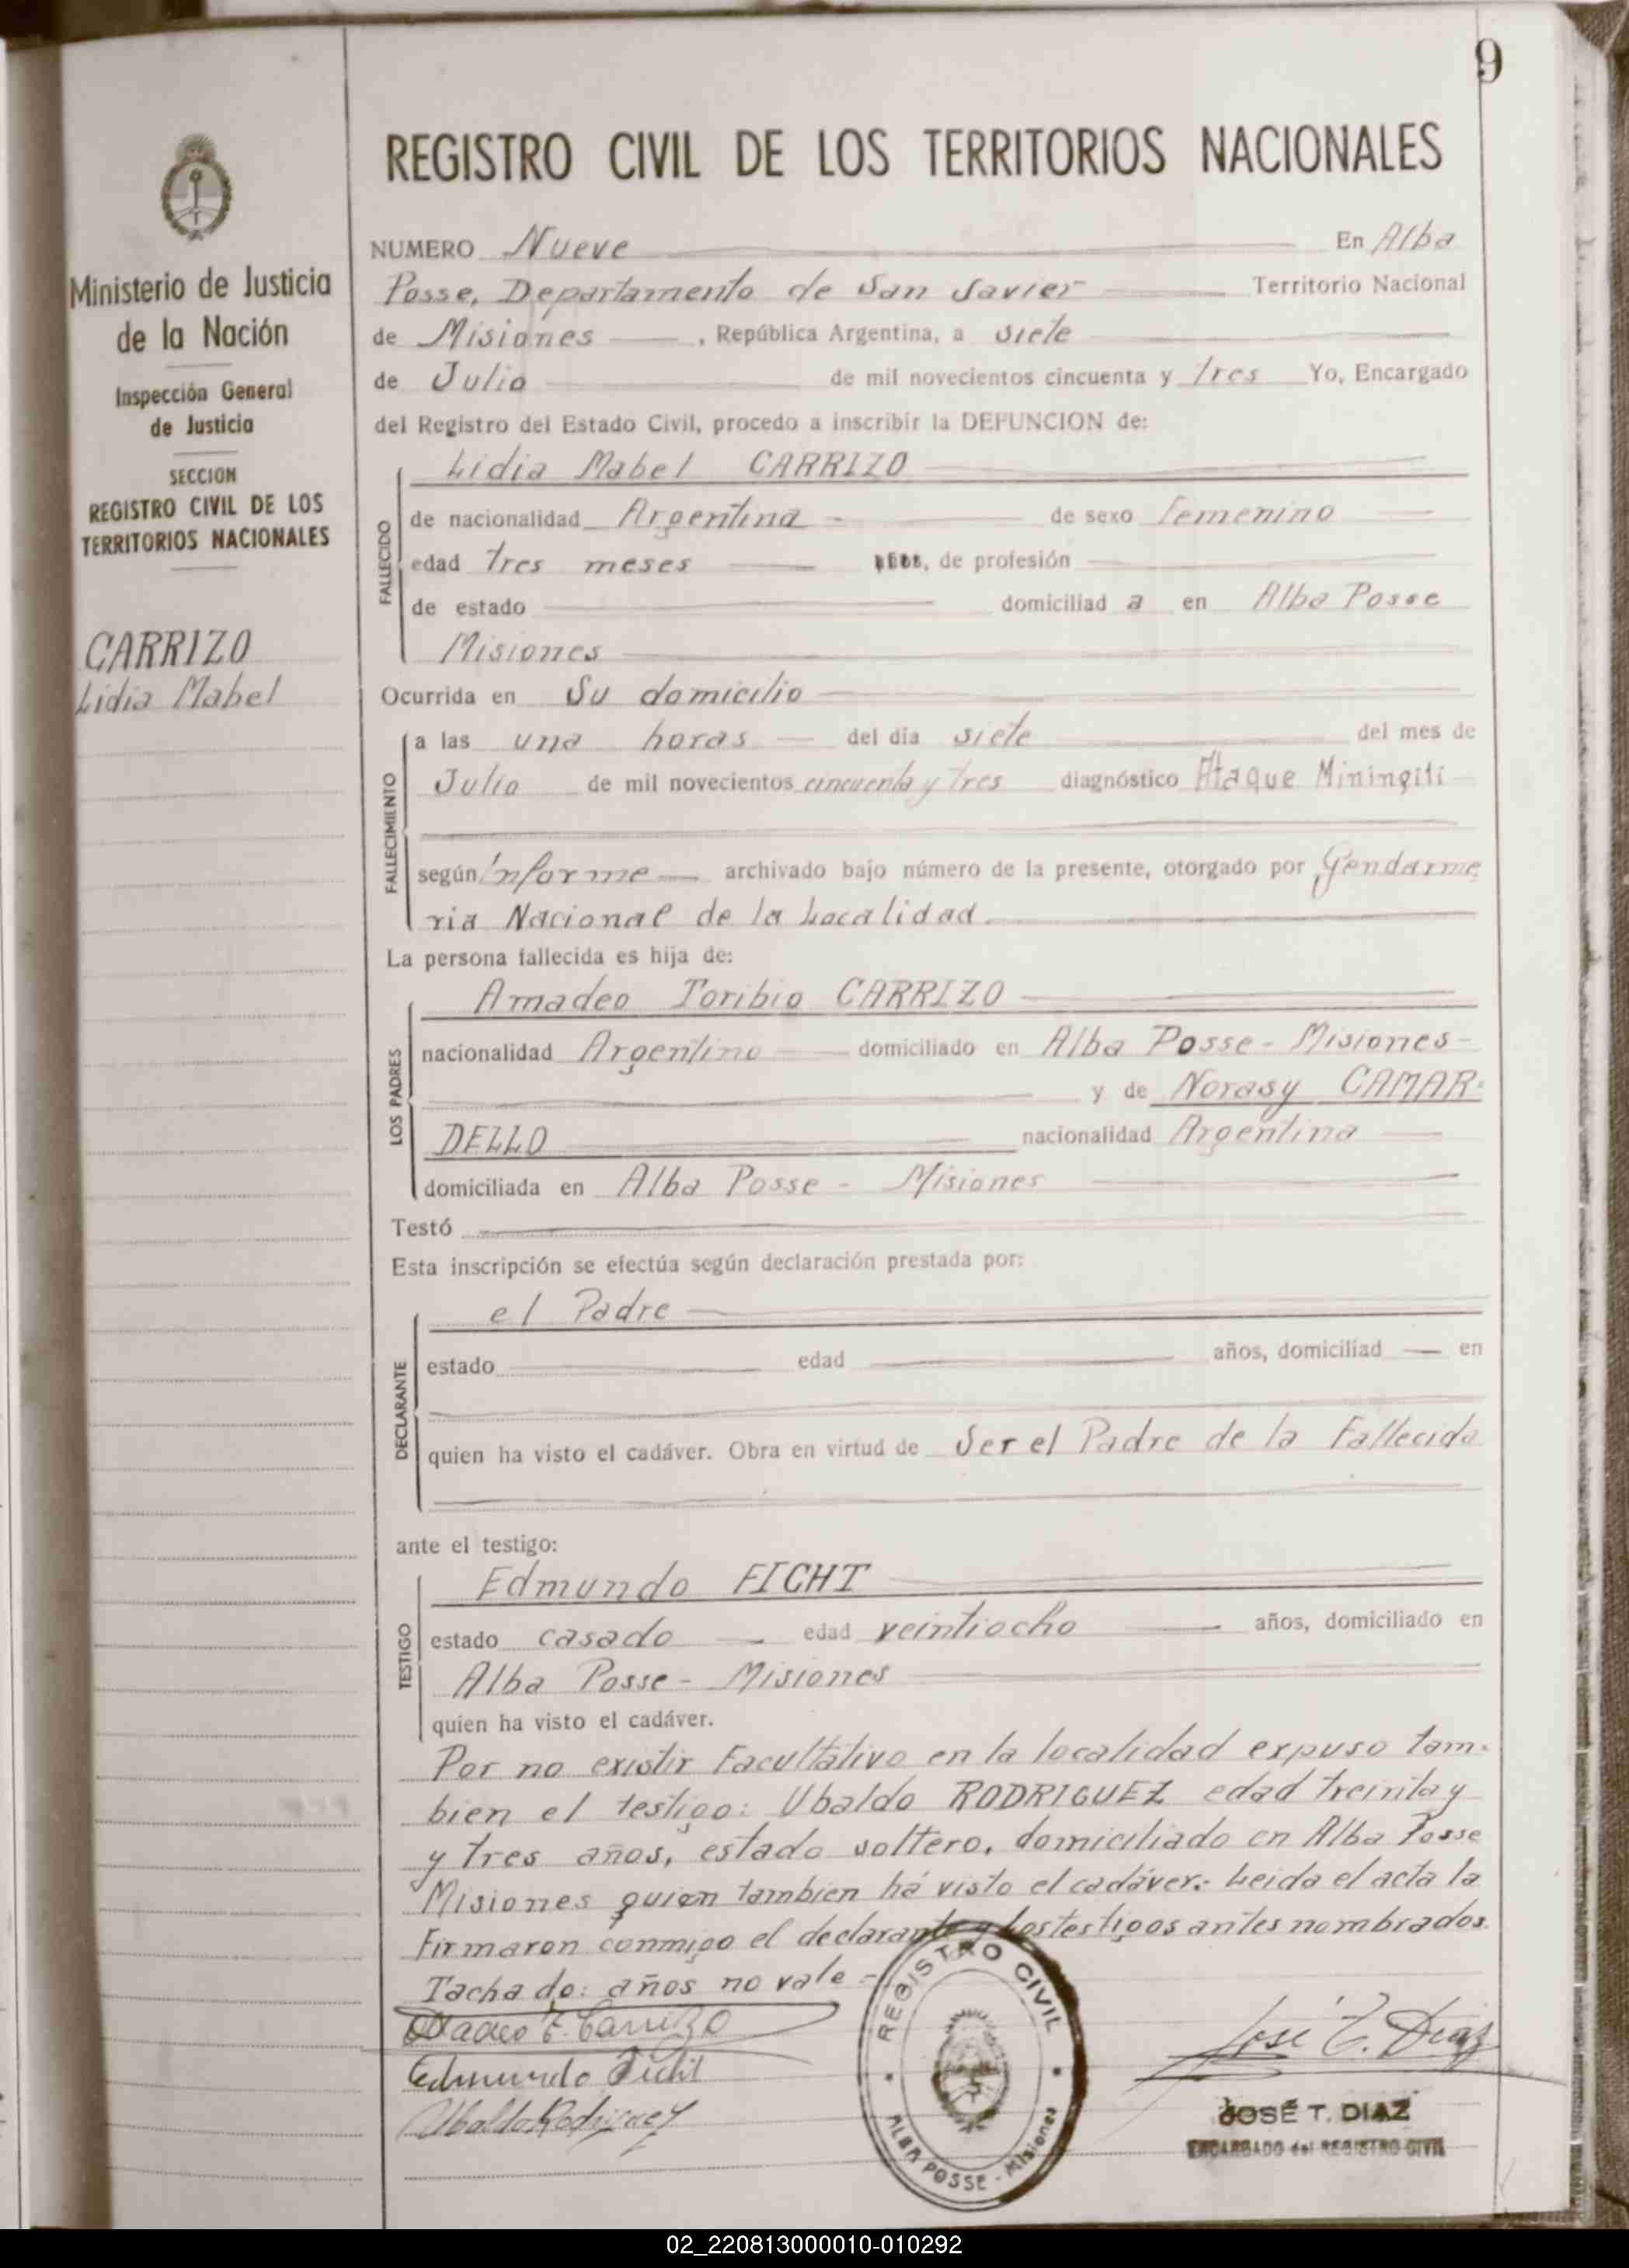 9
REGISTRO CIVIL DE LOS TERRITORIOS NACIONALES
Ministerio de Justicia
de la Nación
Inspección General
de Justicia
SECCION
REGISTRO CIVIL DE LOS
TERRITORIOS NACIONALES
CARRIZO
Lidia Mabel
NUMERO Nueve En Alba
Posse, Departamento de San Javier Territorio Nacional
de Misiones, República Argentina, a siete
de Julio de mil novecientos cincuenta y tres Yo, Encargado
del Registro del Estado Civil, procedo a inscribir la DEFUNCION de:
FALLECIDO
Lidia Mabel CARRIZO
de nacionalidad Argentina - de sexo femenino
edad tres meses años, de profesión
de estado domiciliad a en Alba Posse
Misiones
Ocurrida en Su domicilio
FALLECIMIENTO
a las una horas del día siete del mes de
Julio de mil novecientos cincuenta y tres diagnóstico Ataque Miningiti
según informe archivado bajo número de la presente, otorgado por Gendarme
ria Nacional de la Localidad.
La persona fallecida es hija de:
LOS PADRES
Amadeo Toribio CARRIZO
nacionalidad Argentino domiciliado en Alba Posse - Misiones -
y de Norasy CAMAR-
DELLO nacionalidad Argentina
domiciliada en Alba Posse - Misiones
Testó
Esta inscripción se efectúa según declaración prestada por:
DECLARANTE
el Padre
estado edad años, domiciliad en
quien ha visto el cadáver. Obra en virtud de Ser el Padre de la Fallecida
ante el testigo:
TESTIGO
Edmundo FICHT
estado casado edad veintiocho años, domiciliado en
Alba Posse - Misiones
quien ha visto el cadáver.
Por no existir Facultátivo en la localidad expuso tam-
bien el testigo: Ubaldo RODRIGUEZ edad treinta y
y tres años, estado soltero, domiciliado en Alba Posse
Misiones quien tambien há visto el cadáver.- Leida el acta la
Firmaron conmigo el declarante y los testigos antes nombrados.
Tachado: años no vale -
Amadeo T. Carrizo
Edmundo Ficht
Ubaldo Rodriguez
REGISTRO CIVIL
ALBA POSSE - Misiones
José T. Diaz
JOSÉ T. DIAZ
ENCARGADO del REGISTRO CIVIL
02_220813000010-010292